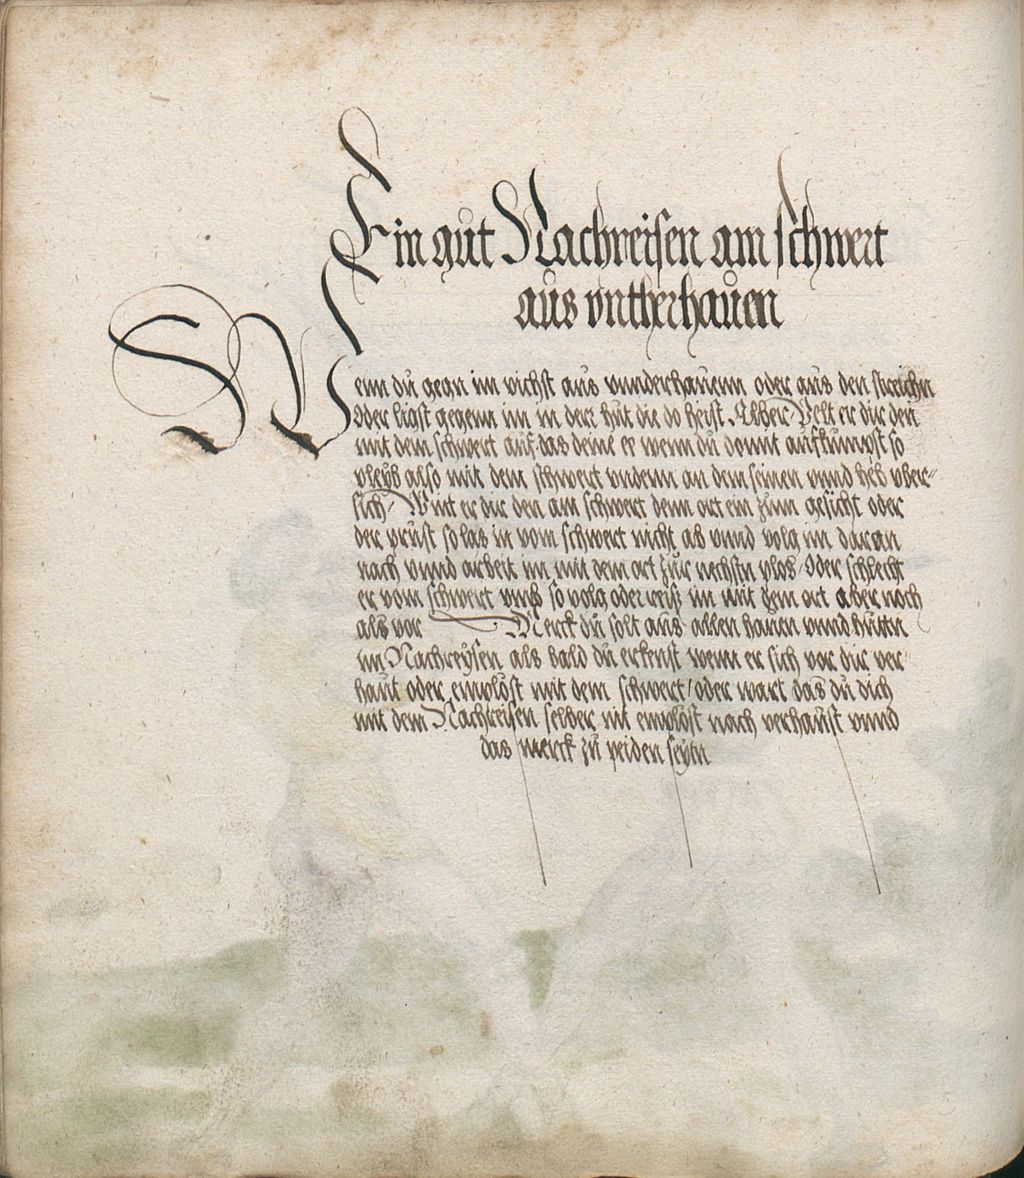 Ein gut Nachreisen am schwert
aus vntherhauen
Wenn du gegn im vichst aus vnnderhauenn oder aus den streichn
Oder ligst gegenn im in derr hut die do heist Alber Velt er dir den
mit dem schwert auf das deine er wenn du domit aufkumpst so
pleyb also mit dem schwert vndenn an dem seinen vnnd heb vber-
sich / Wint er dir den am schwert denn ort ein zum gesicht oder
der prust so las in vom schwert nicht ab vnnd volg im daran
nach vnnd arbeit im mit dem ort zur nechstn plos / Oder schlecht
er vom schwert vmb so volg oder reis im mit dem ort aber noch
als vor Merck du solt aus allen hauen vnnd huttn
im Nachreysen als bald du erkenst wenn er sich vor dir ver-
haut oder emplost mit dem schwert / oder wart das du dich
mit dem Nachreisen selber nit emplost nach verhaust vnnd
das merck zu peiden seytn